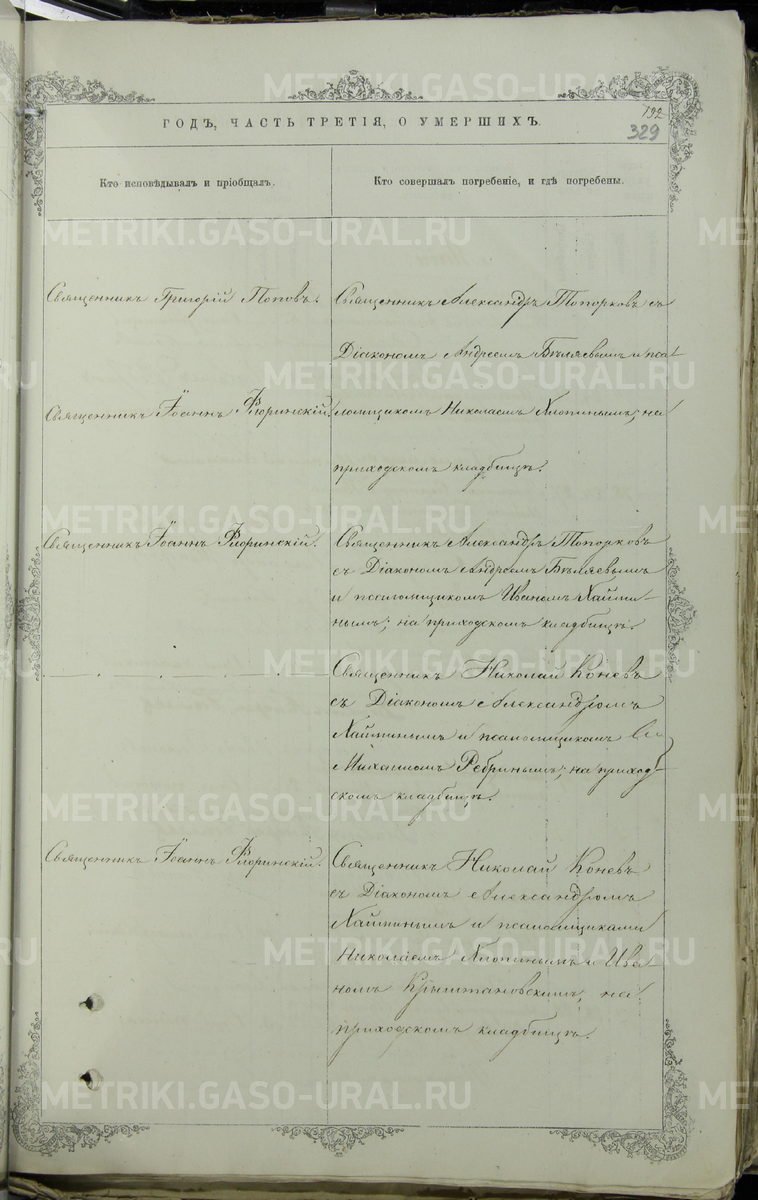 192
329
ГОДЪ, ЧАСТЬ ТРЕТІЯ, О УМЕРШИХЪ.
Кто исповѣдывалъ и пріобщалъ.
Кто совершалъ погребеніе, и гдѣ погребены.
Священникъ Григорій Поповъ.
Священникъ Александръ Топорковъ съ
Діакономъ Андреемъ Бѣляевымъ и пса-
Священникъ Іоаннъ Флоринскій.
ломщикомъ Николаемъ Хлопинымъ; на
приходскомъ кладбищѣ.
Священникъ Іоаннъ Флоринскій.
Священникъ Александръ Топорковъ
съ Діакономъ Андреемъ Бѣляевымъ
и псаломщикомъ Иваномъ Хайми-
нымъ; на приходскомъ кладбищѣ.
Священникъ Николай Коневъ
съ Діакономъ Александромъ
и псаломщикомъ
Михаиломъ Ребринымъ; на приход-
скомъ кладбищѣ.
Священникъ Іоаннъ Флоринскій.
Священникъ Николай Коневъ
съ Діакономъ Александромъ
и псаломщиками
Николаемъ Хлопинымъ и Ива-
номъ Крыштановскимъ, на
приходскомъ кладбищѣ.
METRIKI.GASO-URAL.RU